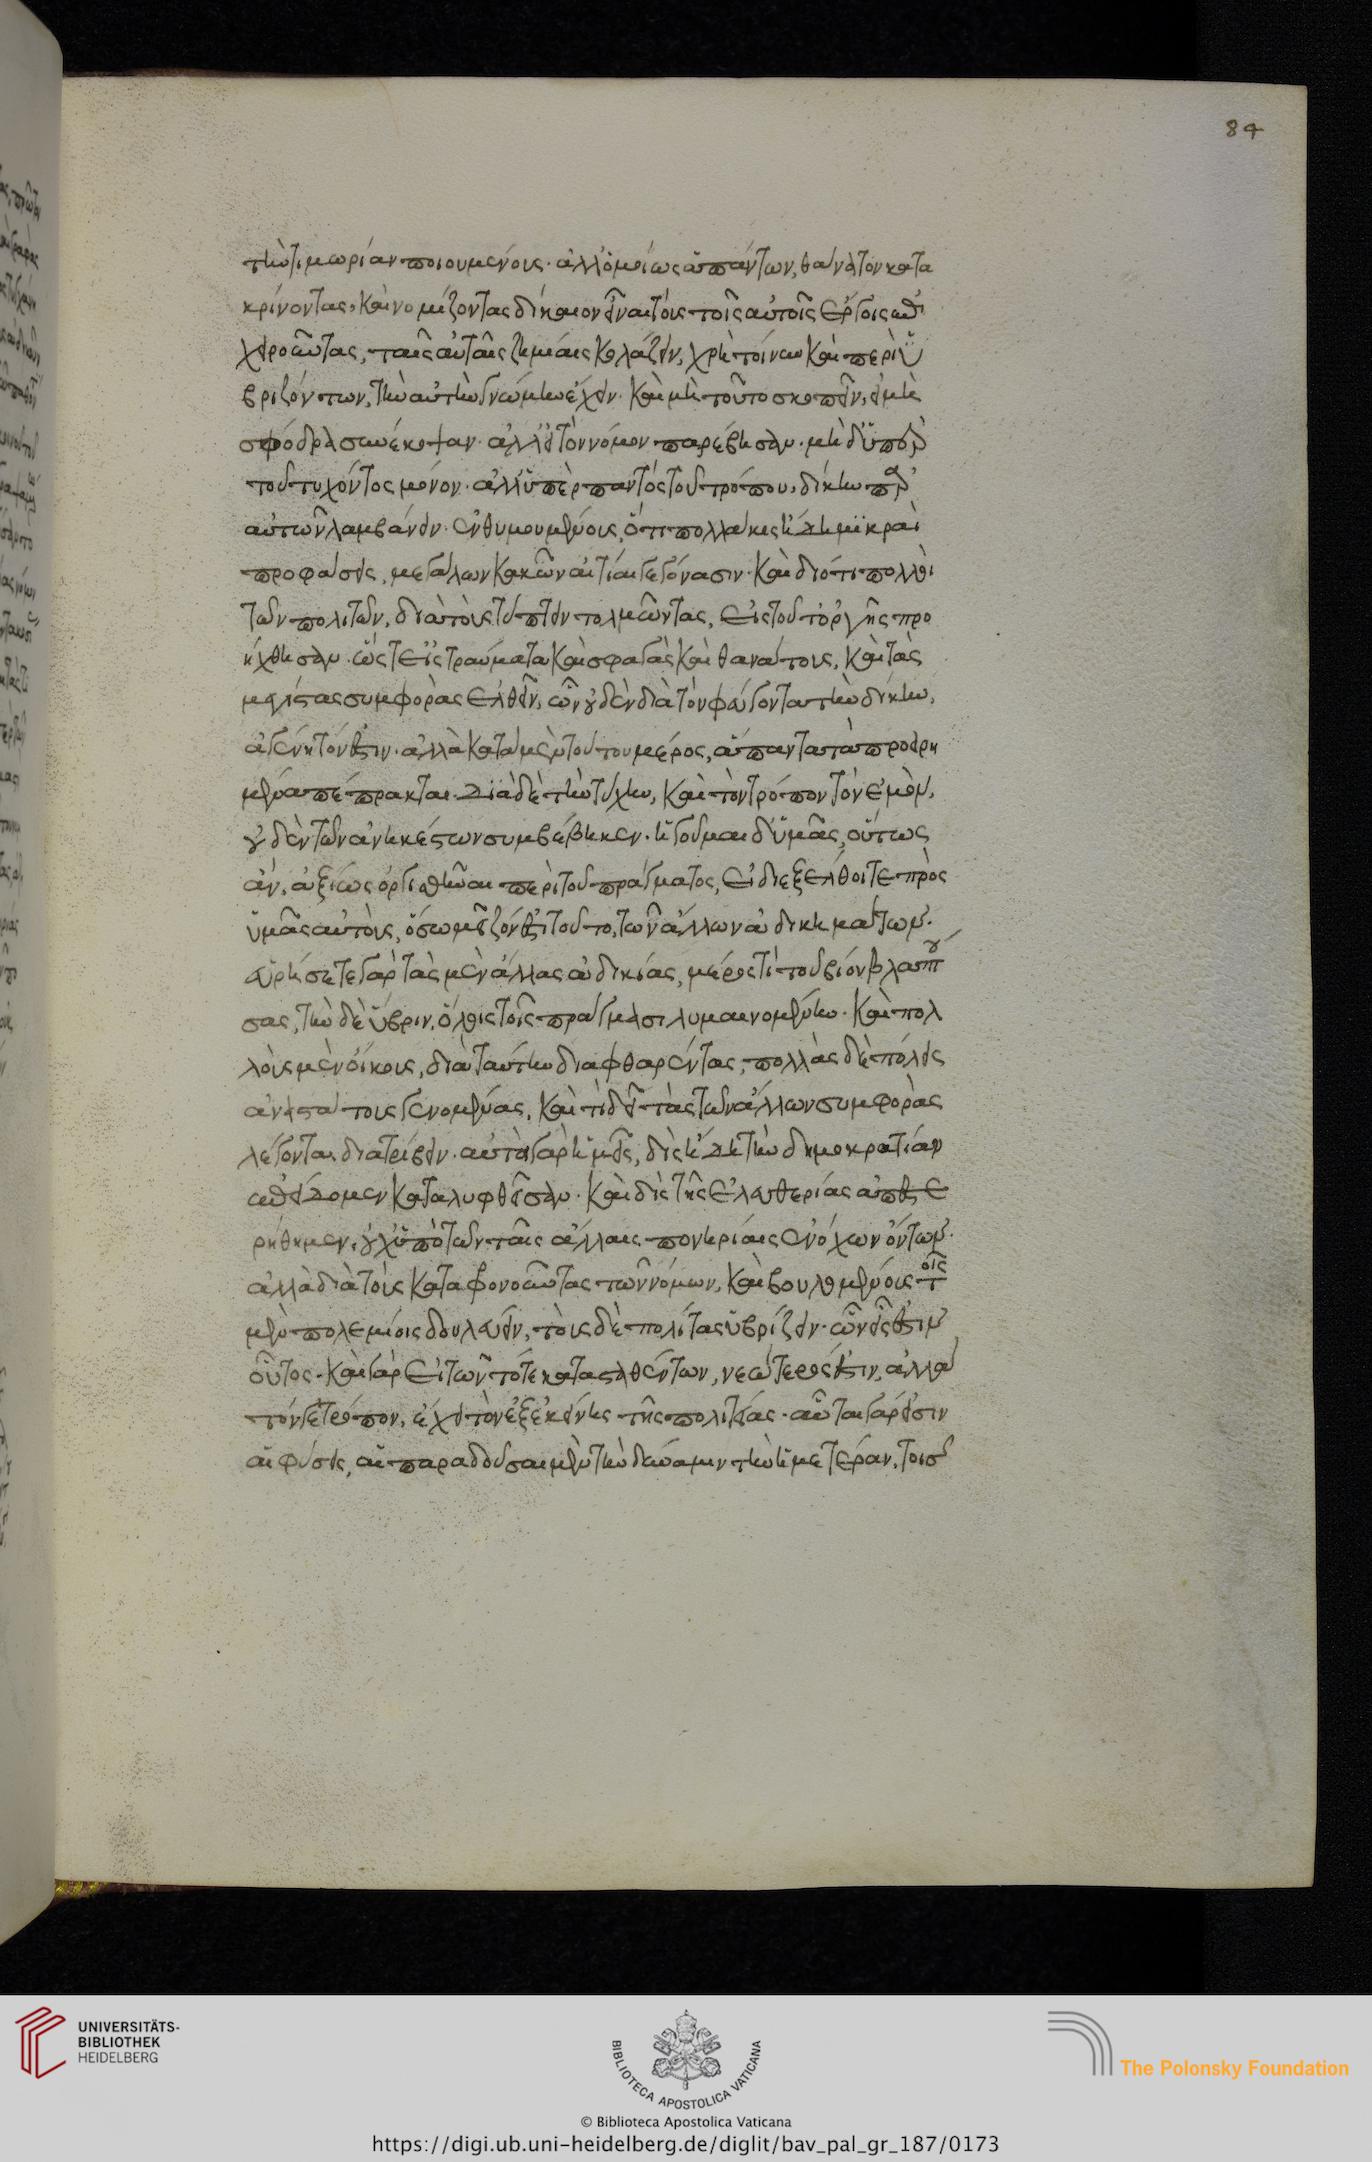 84
τὴν τιμωρίαν ποιουμένους· ἀλλ' ὁμοίως ἁπάντων, θάνατον κατα
κρίνοντας, καὶ νομίζοντας δίκαιον εἶναι τοὺς τοῖς αὐτοῖς ἔργοις ἐπι
χειροῦντας, ταῖς αὐταῖς ζημίαις κολάζειν, χρὴ τοίνυν καὶ περὶ ὑ
βριζόντων, τὴν αὐτὴν γνώμην ἔχειν· καὶ μὴ τοῦτο σκοπεῖν, εἰ μὴ
σφόδρα συνέκοψαν· ἀλλ' εἰ τὸν νόμον παρέβησαν· μηδ' ὑπὲρ
τοῦ τυχόντος μόνον· ἀλλ' ὑπὲρ παντὸς τοῦ τρόπου, δίκην παρ'
αὐτῶν λαμβάνειν· ἐνθυμουμένους, ὅτι πολλάκις ἤδη μϊκραὶ
προφάσεις, μεγάλων κακῶν αἰτίαι γεγόνασιν· καὶ διότι πολλοὶ
τῶν πολιτῶν, διὰ τοὺς τύπτειν τολμῶντας, εἰς τοῦτ' ὀργῆς προ
ήχθησαν· ὥστ' εἰς τραύματα καὶ σφαγὰς καὶ θανάτους, καὶ τὰς
μεγίστας συμφορὰς ἐλθεῖν, ὧν οὐδὲν διὰ τὸν φεύγοντα τὴν δίκην,
ἀγένητόν ἐστιν· ἀλλὰ κατὰ μὲν τὸ τούτου μέρος, ἅπαντα τὰ προειρη
μένα πέπρακται. Διὰ δὲ τὴν τύχην, καὶ τὸν τρόπον τὸν ἐμὸν,
οὐδὲν τῶν ἀνηκέστων συμβέβηκεν· ἡγοῦμαι δ' ὑμᾶς, οὕτως
ἂν, ἀξίως ὀργισθῆναι περὶ τοῦ πράγματος, εἰ διεξέλθοιτε πρὸς
ὑμᾶς αὐτοὺς, ὅσῳ μεῖζόν ἐστι τοῦτο, τῶν ἄλλων ἀδικημάτων·
εὑρήσετε γὰρ τὰς μὲν ἄλλας ἀδικίας, μέρος τὶ τοῦ βίου βλαπτού
σας, τὴν δὲ ὕβριν, ὅλοις τοῖς πράγμασι λυμαινομένην· καὶ πολ
λοὺς μὲν οἴκους, διὰ ταύτην διαφθαρέντας, πολλὰς δὲ πόλεις
ἀναστάτους γενομένας, καὶ τὶ δεῖ τὰς τῶν ἄλλων συμφορὰς
λέγοντα διατρίβειν· αὐτοὶ γὰρ ἡμεῖς, δὶς ἤδη τὴν δημοκρατίαν
ἐπείδομεν καταλυφθεῖσαν· καὶ δὶς τῆς ἐλευθερίας ἀπεστε
ρήθημεν, οὐχ ὑπὸ τῶν ταῖς ἄλλαις πονηρίαις ἐνόχων ὄντων·
ἀλλὰ διὰ τοὺς καταφρονοῦντας τῶν νόμων, καὶ βουλομένους τοῖς
μὲν πολεμίοις δουλεύειν, τοὺς δὲ πολίτας ὑβρίζειν· ὧν εἷς ἐστιν
οὗτος· καὶ γὰρ εἰ τῶν τότε κατασταθέντων, νεώτερός ἐστιν, ἀλλὰ
τόν γε τρόπον, ἔχει τὸν ἐξ ἐκείνης τῆς πολιτείας· αὗται γάρ εἰσιν
αἱ φύσεις, αἱ παραδοῦσαι μὲν τὴν δύναμιν τὴν ἡμετέραν, τοῖς
UNIVERSITÄTS-
BIBLIOTHEK
HEIDELBERG
BIBLIOTECA APOSTOLICA VATICANA
The Polonsky Foundation
© Biblioteca Apostolica Vaticana
https://digi.ub.uni-heidelberg.de/diglit/bav_pal_gr_187/0173